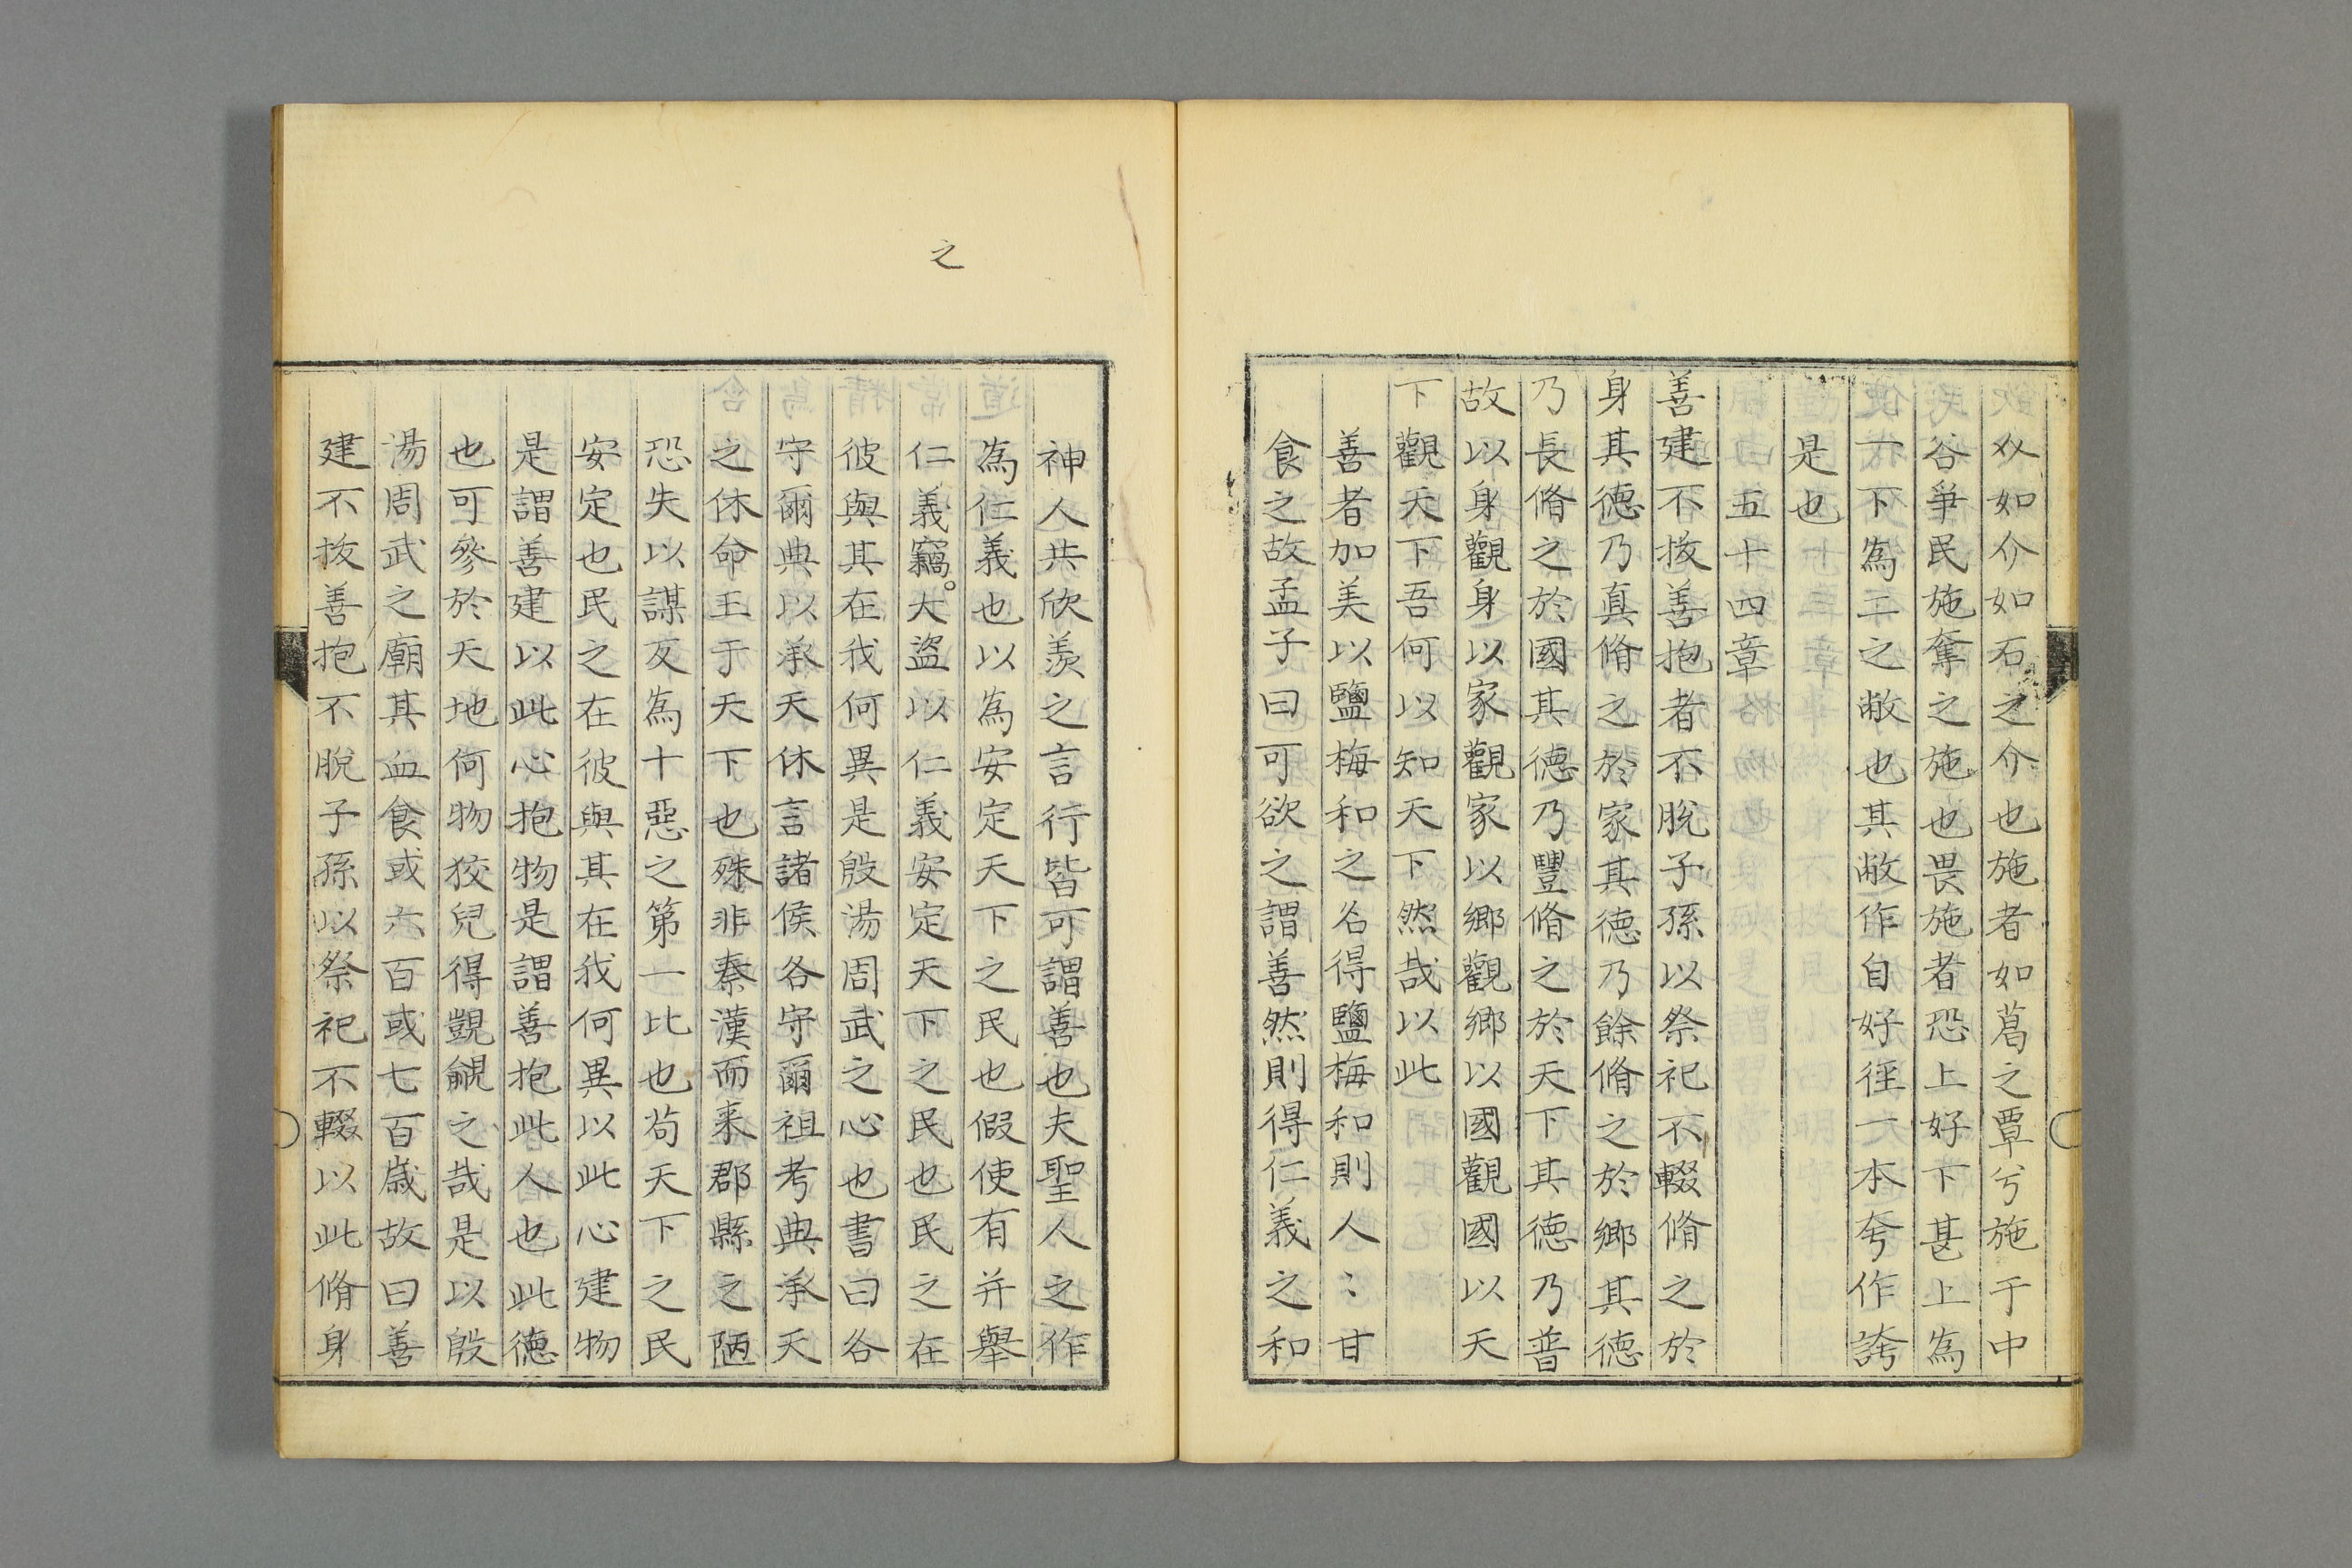 攵如介如石之介也施者如葛之覃兮施于中
谷爭民施奪之施也畏施者恐上好下甚上為
一下為二之敝也其敝作自好徑一本夸作誇
是也
五十四章
善建不拔善抱者不脫子孫以祭祀不輟脩之於
身其德乃真脩之於家其德乃餘脩之於鄉其德
乃長脩之於國其德乃豐脩之於天下其德乃普
故以身觀身以家觀家以鄉觀鄉以國觀國以天
下觀天下吾何以知天下然哉以此
善者加美以鹽梅和之名得鹽梅和則人〻甘
食之故孟子曰可欲之謂善然則得仁義之和
神人共欣羨之言行皆可謂善也夫聖人之作
為仁義也以為安定天下之民也假使有并舉
仁義竊。大盜以仁義安定天下之民也民之在
之
彼與其在我何異是殷湯周武之心也書曰各
守爾典以承天休言諸侯各守爾祖考典承天
之休命王于天下也殊非秦漢而来郡縣之陋
恐失以謀反為十惡之第一比也苟天下之民
安定也民之在彼與其在我何異以此心建物
是謂善建以此心抱物是謂善抱此人也此德
也可參於天地何物狡兒得覬覦之哉是以殷
湯周武之廟其血食或六百或七百歳故曰善
建不拔善抱不脫子孫以祭祀不輟以此脩身